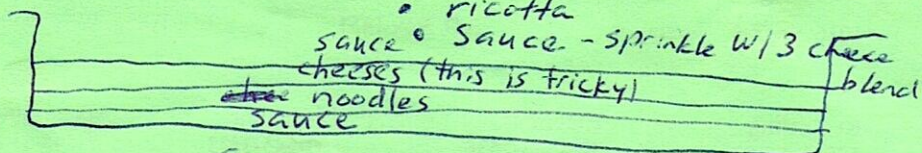 • ricotta
sauce • Sauce - sprinkle w/ 3 cheese
blend
cheeses (this is tricky)
noodles
sauce